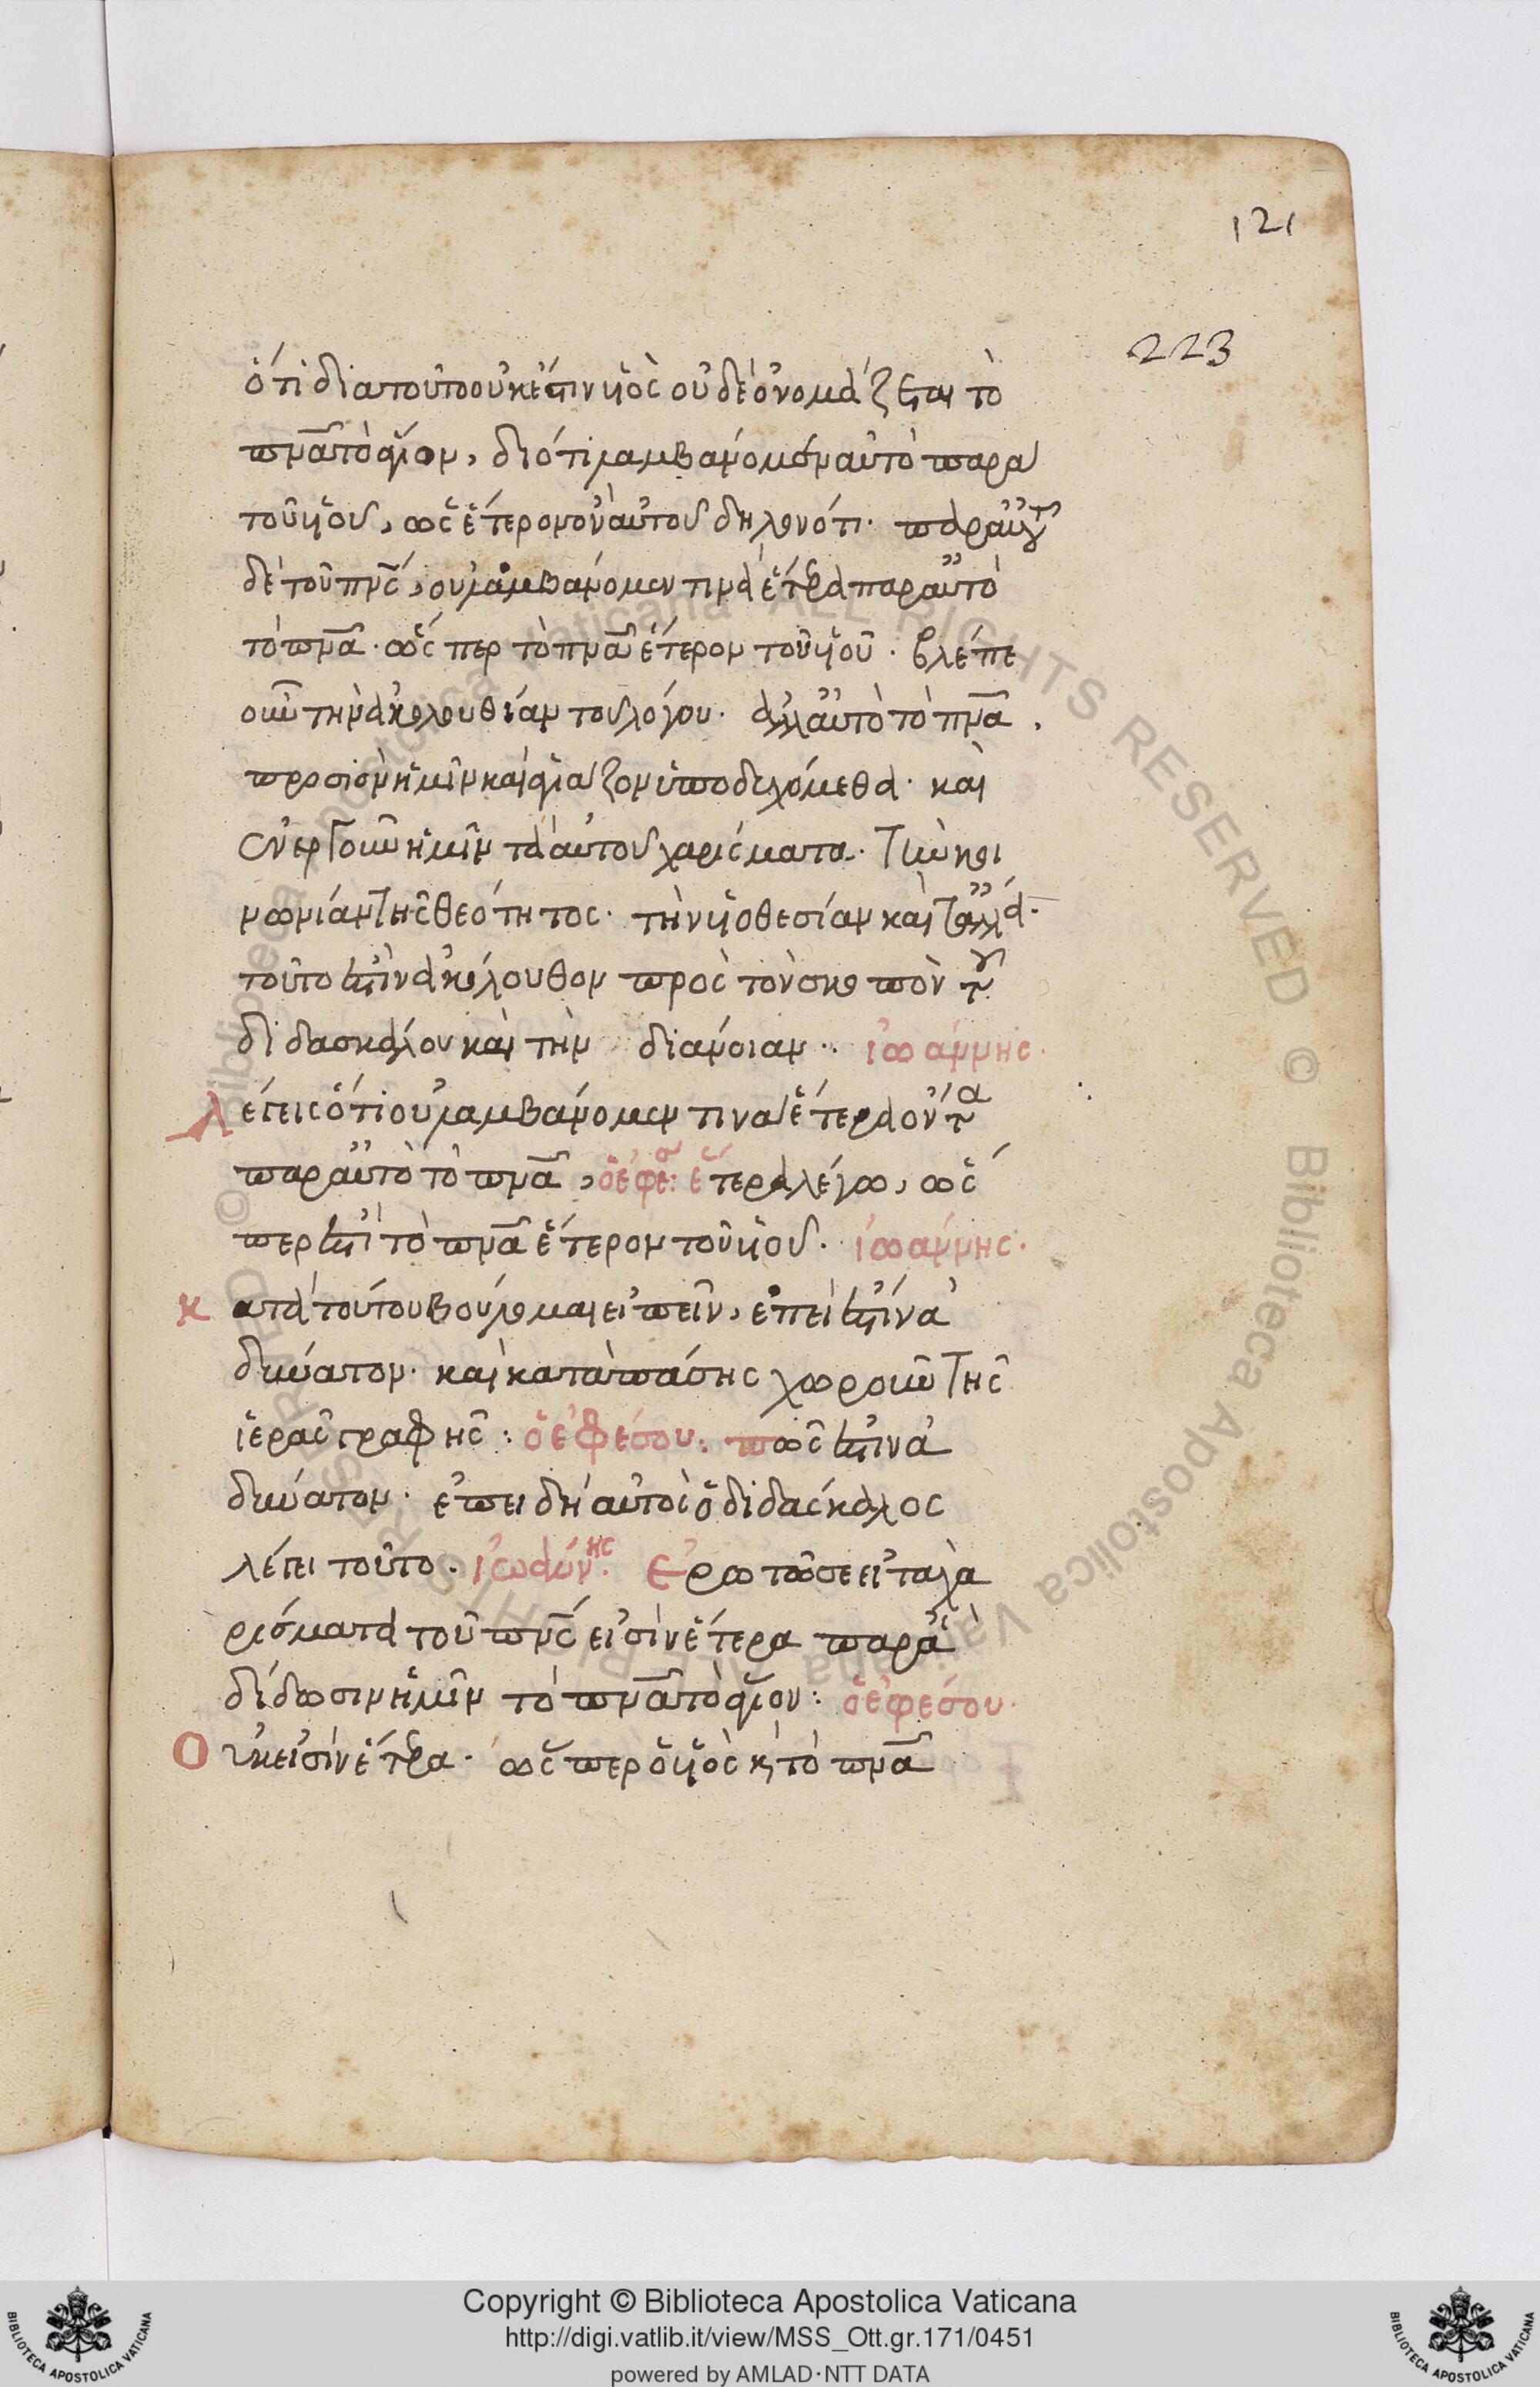 121
223
ὅτι διατοῦτο οὐκ ἔστιν υἱὸς οὐδὲ ὀνομάζεται τὸ
πνᾶ τὸ ἅγιον, διότι λαμβάνομεν αὐτὸ παρα
τοῦ υἱοῦ, ὡς ἕτερον ὂν αὐτοῦ δηλονότι. παρ αὐτοῦ
δὲ τοῦ πνς, οὐ λαμβάνομεν τινὰ ἕτερα παρ αὐτὸ
τὸ πνᾶ. ὥς περ τὸ πνᾶ ἕτερον τοῦ υἱοῦ. βλέπε
οὖν τὴν ἀκολουθίαν τοῦ λόγου. ἀλλ αὐτὸ τὸ πνᾶ.
προσιὸν ἡμῖν καὶ ἁγιάζον ὑποδεχόμεθα. καὶ
ἐνεργοῦν ἡμῖν τὰ αὐτοῦ χαρίσματα. τὴν κοι
νωνίαν τῆς θεότητος. τὴν υἱοθεσίαν καὶ τἄλλα.
τοῦτο ἐστὶν ἀκόλουθον πρὸς τὸν σκοπὸν τοῦ
διδασκάλου καὶ τὴν διάνοιαν.. ἰωάννης.
λέγεις ὅτι οὐ λαμβάνομεν τινὰ ἕτερα ὄντα
παρ αὐτὸ τὸ πνᾶ, ὁ ἐφέσ: ἕτερα λέγω, ὥς
περ ἐστὶ τὸ πνᾶ ἕτερον τοῦ υἱοῦ. ἰωάννης.
κατὰ τούτου βούλομαι εἰπεῖν, ἐπεὶ ἐστὶν ἀ
δύνατον. καὶ κατὰ πάσης χωροῦν τῆς
ἱερᾶς γραφῆς: ὁ ἐφέσου: πῶς ἐστὶν ἀ
δύνατον. ἐπειδὴ αὐτὸς ὁ διδάσκαλος
λέγει τοῦτο. ἰωάννης. Ἐρωτῶ σε εἰ τὰ χα
ρίσματα τοῦ πνς εἰσὶν ἕτερα παρ ἃ
δίδωσιν ἡμῖν τὸ πνᾶ τὸ ἅγιον: ὁ ἐφέσου.
Οὐκ εἰσὶν ἕτερα. ὥς περ ὁ υἱὸς κ τὸ πνᾶ
Copyright © Biblioteca Apostolica Vaticana
http://digi.vatlib.it/view/MSS_Ott.gr.171/0451
powered by AMLAD·NTT DATA